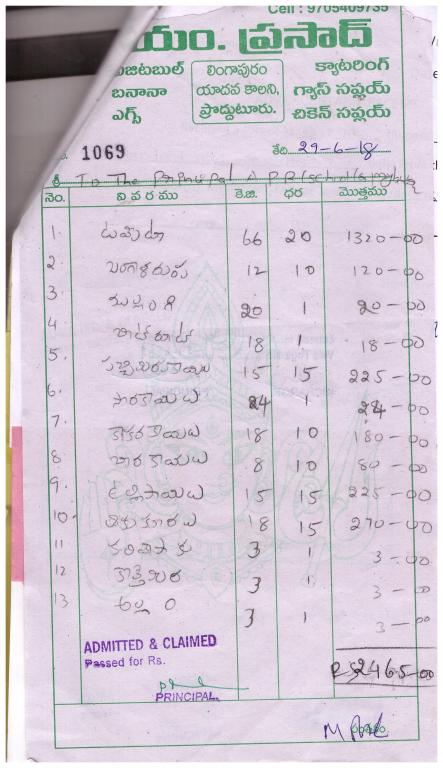 Cell : 9705409735
యం. ప్రసాద్
వెజిటబుల్ లింగాపురం క్యాటరింగ్
బనానా యాదవ కాలని, గ్యాస్ సప్లయ్
ఎగ్స్ ప్రొద్దుటూరు. చికెన్ సప్లయ్
1069 తేది 29-6-18
శ్రీ To The Principal A P R School
నెం. వివరము కె.జి. ధర మొత్తము
1. టమోటా 66 20 1320-00
2 బంగాళదుంప 12 10 120-00
3 ముల్లంగి 20 1 20-00
4 బీట్రూట్ 18 1 18-00
5. పచ్చిమిరపకాయలు 15 15 225-00
6. సొరకాయలు 24 1 24-00
7. కాకరకాయలు 18 10 180-00
8 బీరకాయలు 8 10 80-00
9. ఉల్లిపాయలు 15 15 225-00
10. ఆకుకూరలు 18 15 270-00
11 కరివేపాకు 3 1 3-00
12 కొత్తిమీర 3 1 3-00
13 అల్లం 3 1 3-00
ADMITTED & CLAIMED
Passed for Rs.
Rs 2465-00
PRINCIPAL
సంతకం